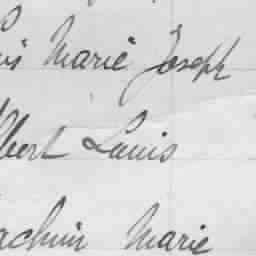 is Marie Joseph
lbert Louis
achim Marie